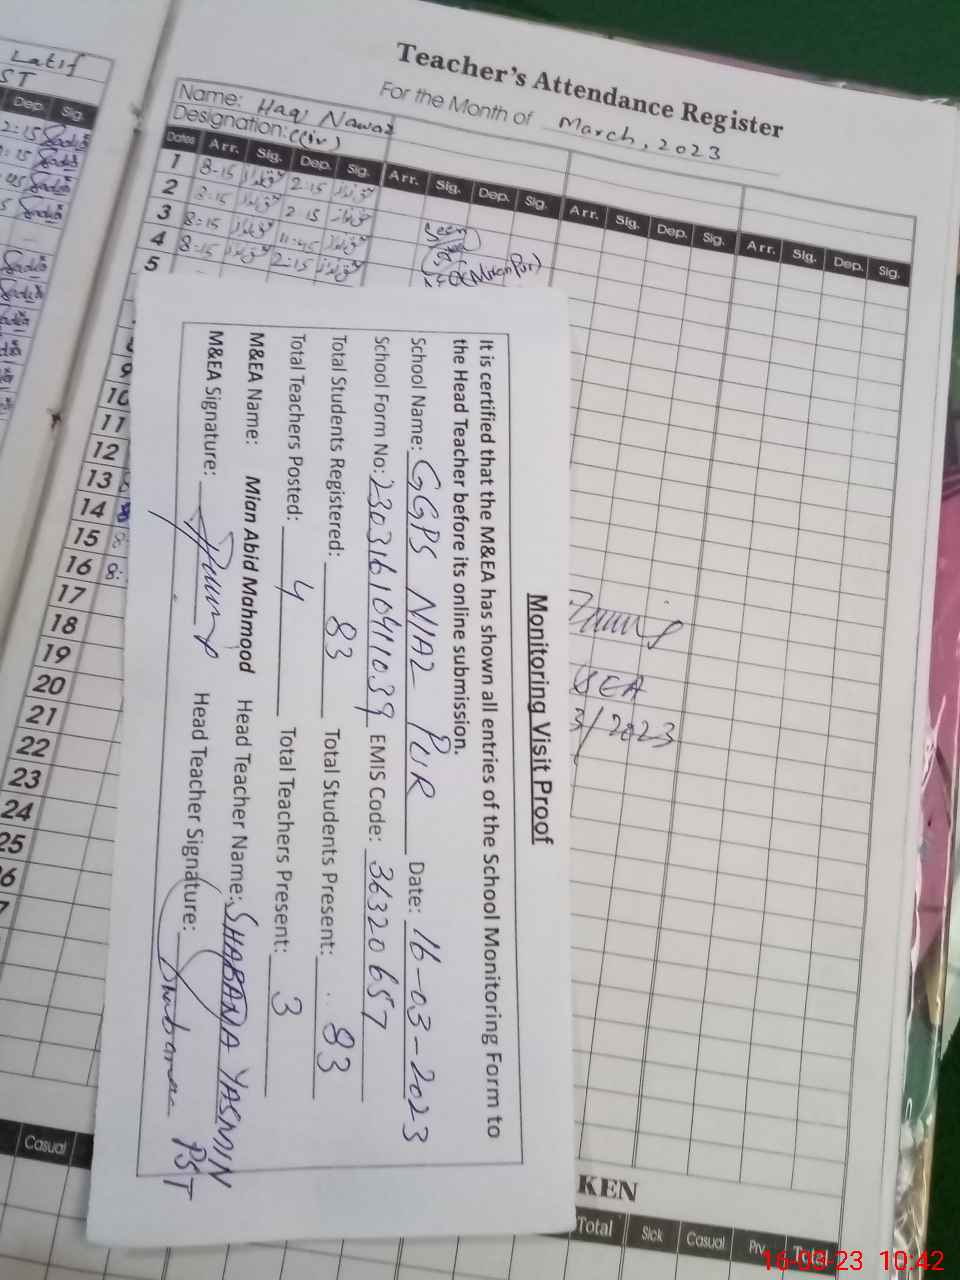 Latif
ST
Dep. Sig.
Teacher's Attendance Register
For the Month of March, 2023
Name: Haq Nawaz
Designation:
Dates Arr. Sig. Dep. Sig. Arr. Sig. Dep. Sig. Arr. Sig. Dep. Sig. Arr. Sig. Dep. Sig.
1 8-15 2:15
2 8:15 2 15
3 8:15 11:45
4 8:15 2:15
5
Seen
9
10
11
12
13
14
15 8
16 8:
17
18
19
20
21
22
23
24
25
Monitoring Visit Proof
It is certified that the M&EA has shown all entries of the School Monitoring Form to
the Head Teacher before its online submission.
School Name: GGPS NIAZ PUR Date: 16-03-2023
School Form No: 23031610411039 EMIS Code: 36320657
Total Students Registered: 83 Total Students Present: 83
Total Teachers Posted: 4 Total Teachers Present: 3
M&EA Name: Mian Abid Mahmood Head Teacher Name: SHABANA YASMIN
M&EA Signature: Head Teacher Signature: Shabana PST
3/2023
KEN
Casual
Total Sick Casual Prv. Total
16-03-23 10:42